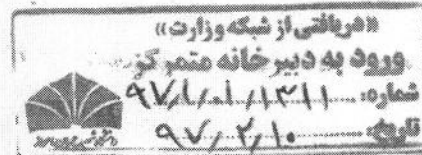 «دریافتی از شبکه وزارت»
ورود به دبیرخانه متمرکز
شماره: ۹۷/۱/۰۱/۱۳۱۱
تاریخ: ۹۷/۲/۱۰